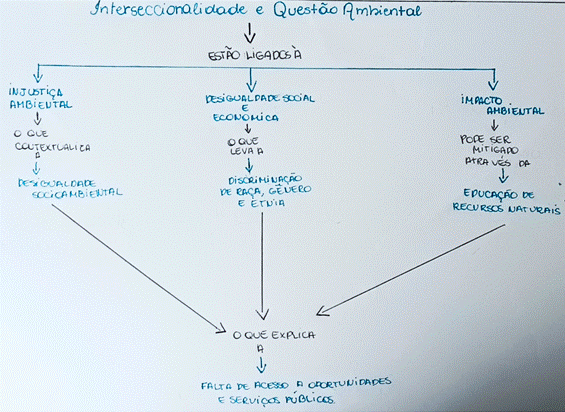 Interseccionalidade e Questão Ambiental
ESTÃO LIGADOS À
INJUSTIÇA
AMBIENTAL
O QUE
CONTEXTUALIZA
A
DESIGUALDADE
SOCIOAMBIENTAL
DESIGUALDADE SOCIAL
E
ECONOMICA
O QUE
LEVA A
DISCRIMINAÇÃO
DE RAÇA, GÊNERO
E ETNIA
IMPACTO
AMBIENTAL
PODE SER
MITIGADO
ATRAVÉS DA
EDUCAÇÃO DE
RECURSOS NATURAIS
O QUE EXPLICA
A
FALTA DE ACESSO A OPORTUNIDADES
E SERVIÇOS PÚBLICOS.